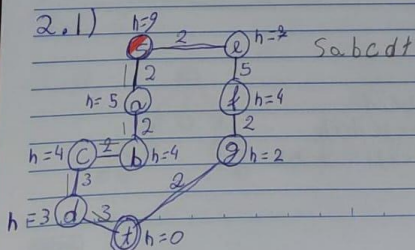 2.1)
h=9
2 e h=7
Sabcdt
2 5
h=5 a f h=4
2 2
h=4 c 2 b h=4 g h=2
3 2
h=3 d 3
t h=0